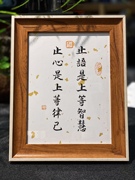 止語是上等智慧
止心是上等律己